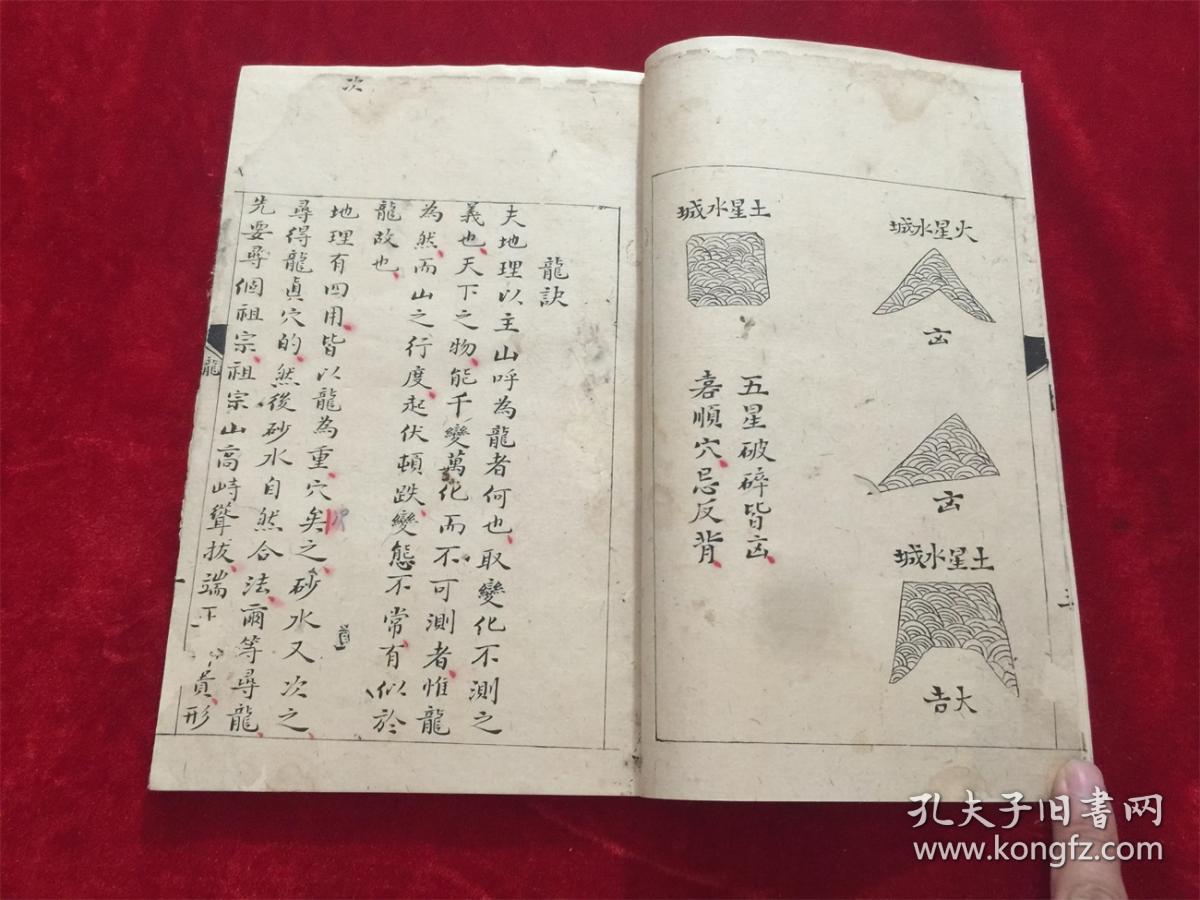 火星水城
凶
凶
土星水城
大吉
土星水城
五星破碎皆凶
喜順穴忌反背
三
龍訣
夫地理以主山呼為龍者何也取變化不測之
義也天下之物能千變萬化而不可測者惟龍
為然而山之行度起伏頓跌變態不常有似於
龍故也
地理有四用皆以龍為重穴次之砂水又次之
尋得龍真穴的然後砂水自然合法爾等尋龍
先要尋個祖宗祖宗山高峙聳拔端
貴形
次
龍
一
孔夫子旧书网
www.kongfz.com